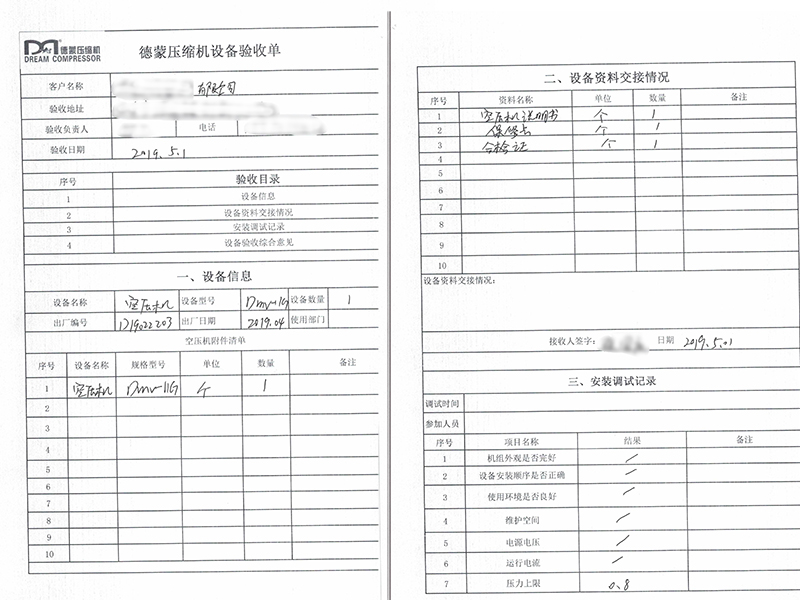 德蒙压缩机
DREAM COMPRESSOR
德蒙压缩机设备验收单
客户名称 有限公司
验收地址
验收负责人 电话
验收日期 2019.5.1
序号 验收目录
1 设备信息
2 设备资料交接情况
3 安装调试记录
4 设备验收综合意见
一、设备信息
设备名称 空压机 设备型号 Dmv-11G 设备数量 1
出厂编号 D19022203 出厂日期 2019.04 使用部门
空压机附件清单
序号 设备名称 规格型号 单位 数量 备注
1 空压机 Dmv-11G 个 1
2
3
4
5
6
7
8
9
10
二、设备资料交接情况
序号 资料名称 单位 数量 备注
1 空压机说明书 个 1
2 保修卡 个 1
3 合格证 个 1
4
5
6
7
8
9
10
设备资料交接情况:
接收人签字: 日期 2019.5.01
三、安装调试记录
调试时间
参加人员
序号 项目名称 结果 备注
1 机组外观是否完好 /
2 设备安装顺序是否正确 /
3 使用环境是否良好 /
4 维护空间 /
5 电源电压 /
6 运行电流 /
7 压力上限 0.8